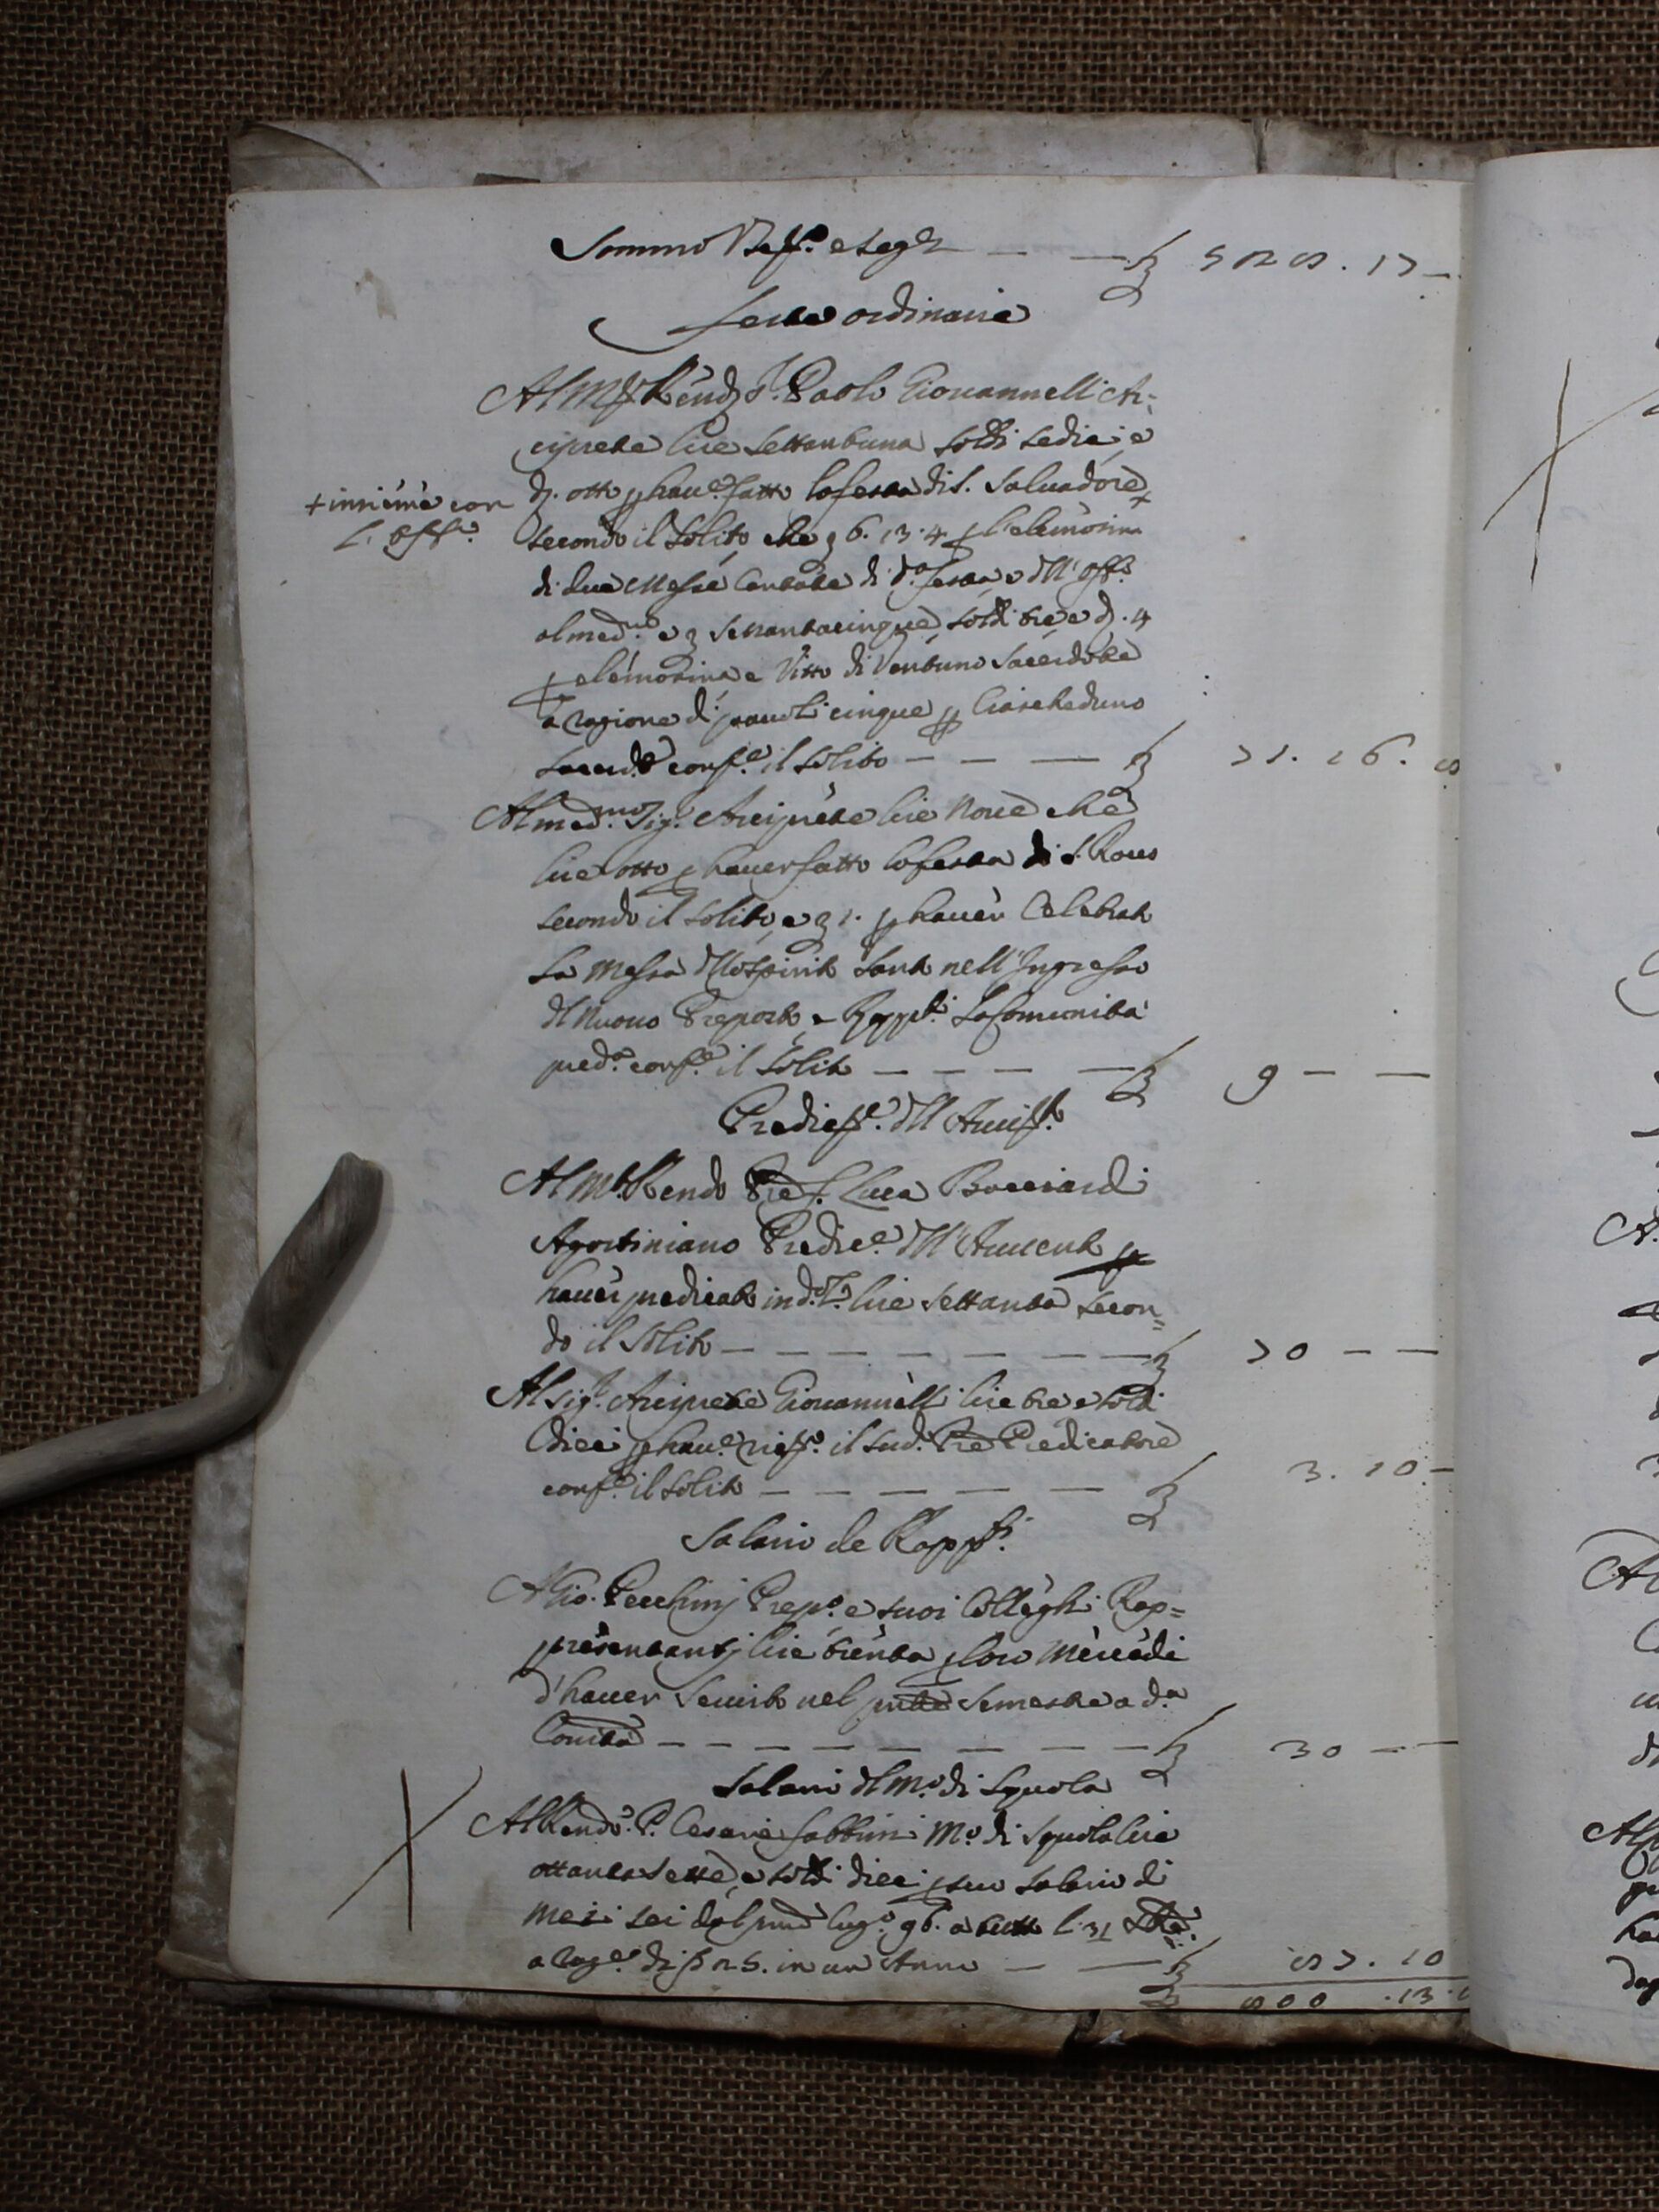 Somma Retr. e segt. — — £ 528. 17 —
Feste ordinarie
Al M. Rendo S. Paolo Giovannelli Ar=
ciprete lire settantuna soldi sedici, e
d. otto p. haue. fatto la festa di S. Saluadore +
+ insieme con
l. Offo.
secondo il solito, che £ 6. 13. 4 p. l'elemosina
di due Messe Cantate di da. festa, e dll' Offo.
al medmo. e £ settantacinque, soldi tre e d. 4
p. elemosina e Vitto di Ventuno Sacerdote
a ragione di pauoli cinque p. Ciascheduno
Sacerd. conf. il solito — — — £ 71. 16. 8
Al medmo. Sigr. Arciprete lire noue che
lire otto p. hauer fatto la festa di S. Rocco
secondo il solito, e £ 1. p. hauer Celebrato
la Messa dllo Spirito Santo nell' Ingresso
dl nuouo Preposto, e Rappti. la Comunità
preda. conf. il solito — — — — £ 9 — —
Predicre. dll' Auuto.
Al M. Rendo Pre F. Luca Bacciardi
Agostiniano Predice. dll' Auuento p.
hauer predicato in da. Ta. lire settanta secon=
do il solito — — — — — — — £ 70 — —
Al Sigr. Arciprete Giouannelli lire tre e soldi
dieci p. haue. ricto. il sud. Pre Predicatore
conf. il solito — — — — — £ 3. 10 —
Salario de Rappti.
A Gio. Pecchinj Prepo. e suoi Colleghi Rap=
presentantj lire trenta p. loro Mercede
d'hauer seruito nel pnte Semestre a da.
Comtà — — — — — — — £ 30 — —
Salario dl Mo. di Squola
Al Rendo. P. Cesare Fabbrini Mo. di Squola lire
ottantasette, e soldi dieci p. suo salario di
mesi sei dal pmo lugo. 96. a tutto l. 31 Xbre.
a ragne. di 25. in un Anno — — £ 87. 10
800 .13.